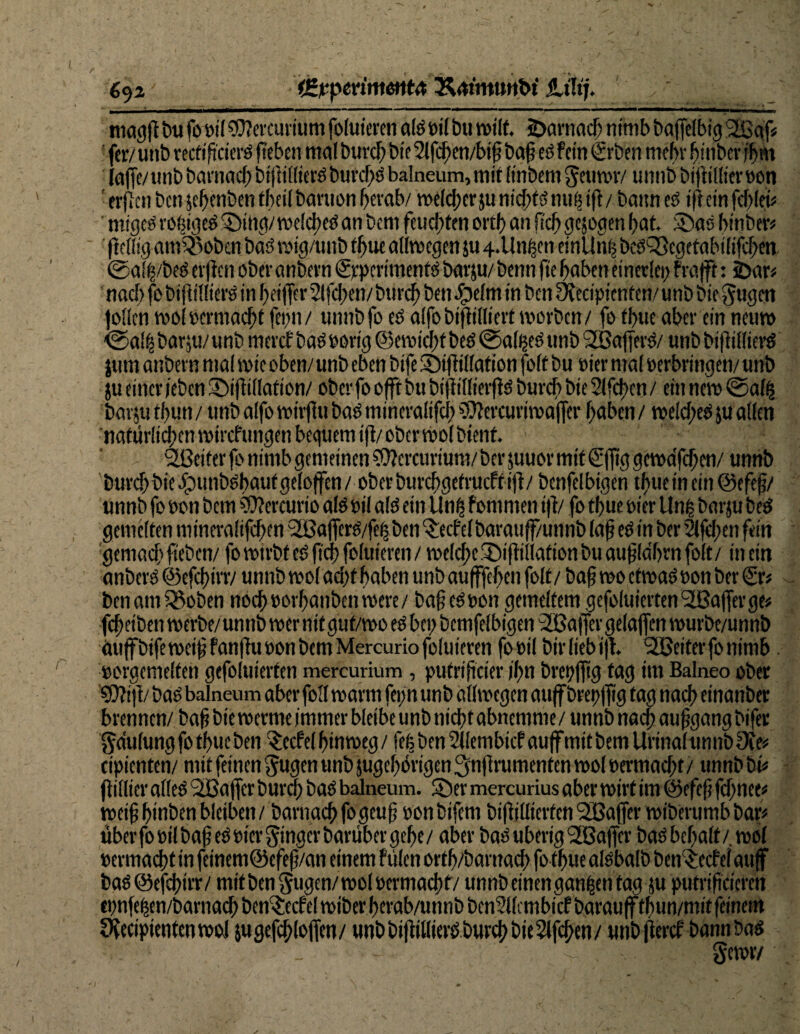 692 Experimenta Raimundi Lilij.
magst du so vil Mercurium soluieren als vil du wilt. Darnach nimb dasselbig Waſ⸗
ser/ und rectificiers sieben mal durch die Aschen/biß daß es kein Erden mehr hinder ihm
lasse/ unnd darnach distilliers durchs balneum, mit lindem Feuwr/ unnd distillier von
ersten den zehenden theil daruon herab/ welcher zu nichts nutz ist/ dann es ist ein schlei⸗
miges rotziges Ding/ welches an dem feuchten orth an sich gezogen hat. Das hinder⸗
stellig am Boden das wig/unnd thue allwegen zu 4. Untzen ein Untz des Vegetabilischen
Saltz/des ersten oder andern Experiments darzu/ denn sie haben einerley krafft: Dar⸗
nach so distilliers in heisser Aschen/ durch den Helm in den Recipienten/ und die Fugen
sollen wol vermacht seyn/ unnd so es also distilliert worden/ so thue aber ein neuw
Saltz darzu/ und merck das vorig Gewicht des Saltzes und Wassers/ und distilliers
zum andern mal wie oben/ und eben dise Distillation solt du vier mal verbringen/ und
zu einer jeden Distillation/ oder so offt du distillierst durch die Aschen/ ein new Saltz
darzu thun/ und also wirstu das mineralisch Mercuriwasser haben/ welches zu allen
natürlichen wirckungen bequem ist/ oder wol dient.
Weiter so nimb gemeinen Mercurium/ der zuuor mit Essig gewäschen/ unnd
durch die Hundshaut geloffen/ oder durchgetruckt ist/ denselbigen thue in ein Gefeß/
unnd so von dem Mercurio als vil als ein Untz kommen ist/ so thue vier Untz darzu des
gemelten mineralischen Wassers/setz den Deckel darauff/unnd laß es in der Aschen fein
gemach sieden/ so wirdt es sich soluieren/ welche Distillation du außlährn solt/ in ein
anders Geschirr/ unnd wol acht haben und auffsehen solt/ daß wo etwas von der Er⸗
den am Boden noch vorhanden were/ daß es von gemeltem gesoluierten Wasser ge⸗
scheiden werde/ unnd wer nit gut/wo es bey demselbigen Wasser gelassen wurde/unnd
auff dise weiß kanstu von dem Mercurio soluieren so vil dir lieb ist. Weiter so nimb
vorgemelten gesoluierten mercurium, putrificier ihn dreyssig tag im Balneo oder
Mist/ das balneum aber soll warm seyn und allwegen auff dreyssig tag nach einander
brennen/ daß die werme immer bleibe und nicht abnemme/ unnd nach außgang diser
Fäulung so thue den Deckel hinweg/ setz den Allembick auff mit dem Urinal unnd Re⸗
cipienten/ mit seinen Fugen und zugehörigen Instrumenten wol vermacht/ unnd di⸗
stillier alles Wasser durch das balneum. Der mercurius aber wirt im Gefeß schnee⸗
weiß hinden bleiben/ darnach so geuß von disem distillierten Wasser widerumb dar⸗
über so vil daß es vier Finger darüber gehe/ aber das uberig Wasser das behalt/ wol
vermacht in seinem Gefeß/an einem külen orth/darnach so thue alsbald den Deckel auff
das Geschirr/ mit den Fugen/ wol vermacht/ unnd einen gantzen tag zu putrificieren
eynsetzen/darnach den Deckel wider herab/unnd den Allembick darauff thun/mit seinem
Recipienten wol zugeschlossen/ und distilliers durch die Aschen/ und sterck dann das
Fewr/